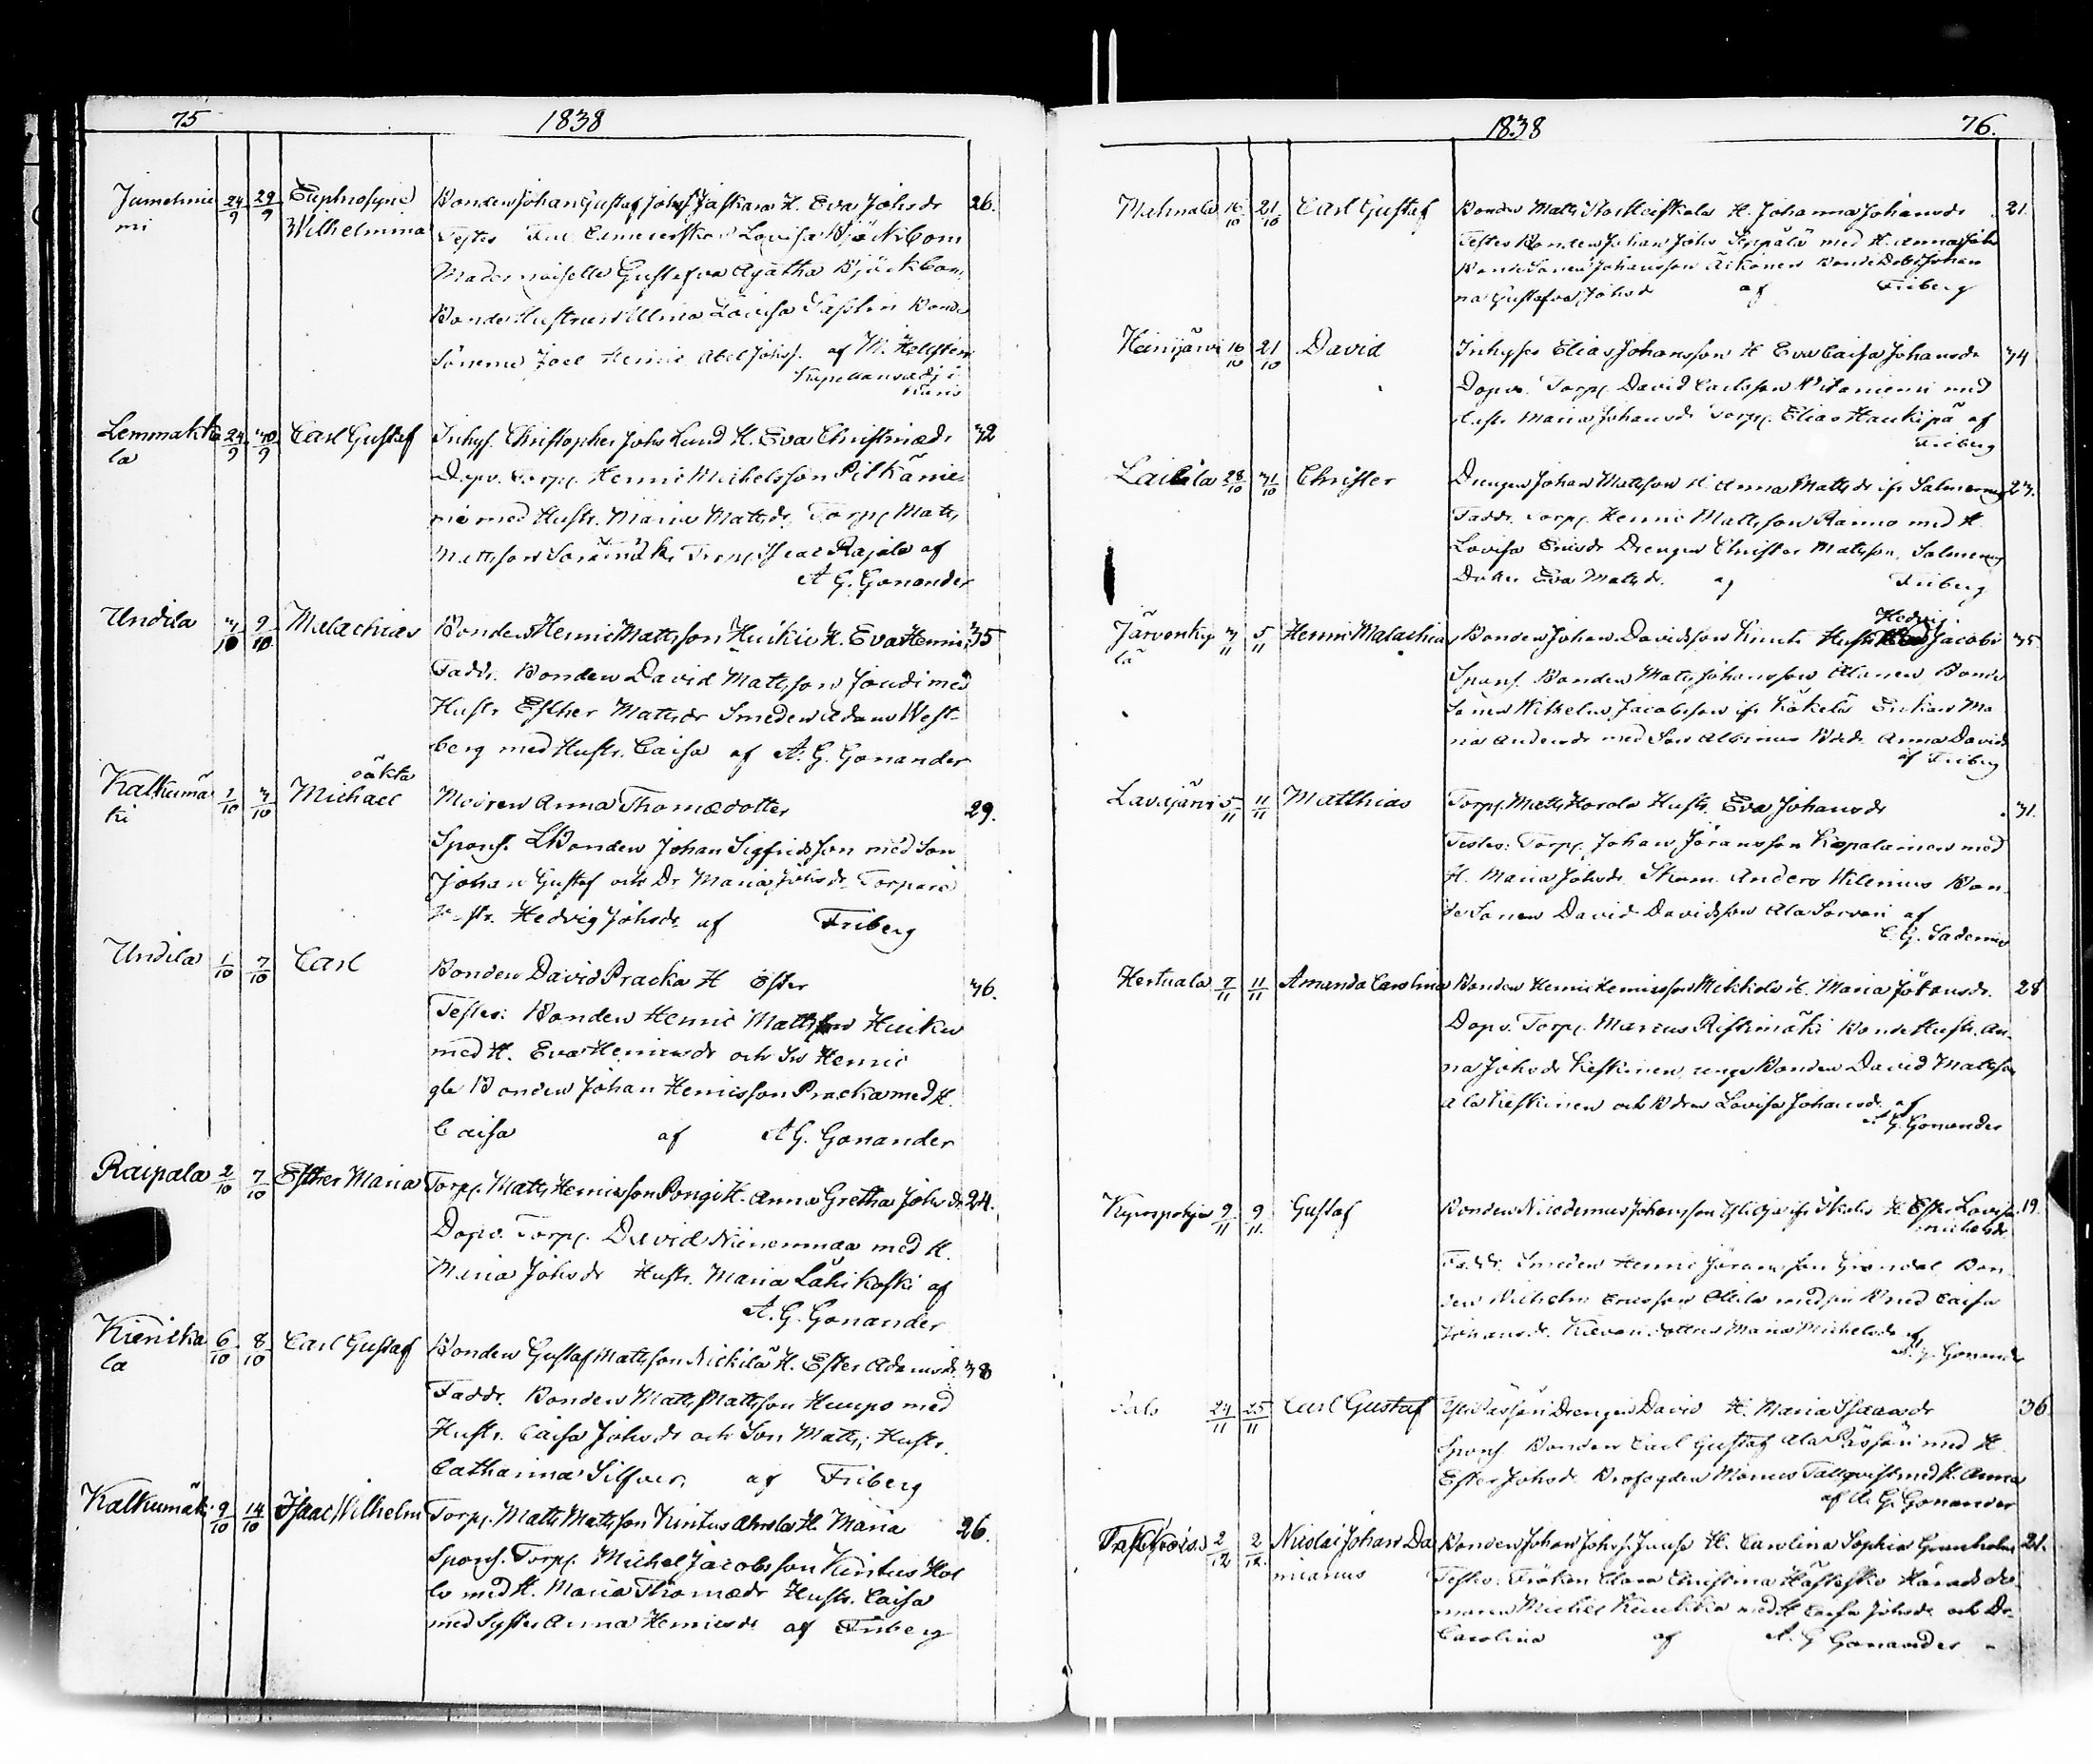 75 1838
Jumelnie
mi
24/9 29/9 Euphrosyne
Wilhelmina
Bonden Johan Gustaf Johss. Jaskara H. Eva Johsdr 26.
Testes Lovisa Björkbom
Mademoiselle Gustafva Agatha Björkbom
Bonde Hustrun Ulrica Lovisa Bonde
Sönerne Joel Henric Abel Johss. af M. Hellsten
Kapellansadj. i
Lemmakka
la
24/9 30/9 Carl Gustaf Inhys. Christopher Johs Lund H. Eva Christiædr 32
Dopv. Torp. Henric Michelsson Pitkänie
mi med Hustr. Maria Mattsdr, Torp. Matts
Mattsson Torp. Isaac Rajala af
A G. Gonander
Undila 3/10 9/10 Malachias Bonden Henric Mattsson Huikio H. Eva Henrics 35
Faddr. Bonden David Mattsson Joudi med
Hustr Esther Mattsdr Smeden Adam West-
berg med Hustr. Caisa af A. G. Gonander
Kalkumä
ki
1/10 3/10 oäkta
Michael Modren Anna Thomædotter 29.
Spons. Bonden Johan Sigfridsson med Son
Johan Gustaf och Dr Maria Johsdr. Torpare
Hustr. Hedvig Johsdr. af Friberg
Undila 1/10 7/10 Carl Bonden David Pracka H Ester 36.
Testes: Bonden Henric Mattsson Huikio
med H. Eva Henricsdr och Sn Henric
gle Bonden Johan Henricsson Pracka med H.
Caisa af A G. Gonander
Raipala 2/10 7/10 Esther Maria Torp. Matts Henricsson Pongi H. Anna Gretha Johs dr 24.
Dopv. Torp. David Niinenmaa med H.
Maria Johsdr Hustr. Maria Lähikoski af
A. G. Gonander
Kierilka
la
6/10 8/10 Carl Gustaf Bonden Gustaf Mattsson Nickilä H. Ester Adamsdr. 38
Faddr. Bonden Matts Mattsson Humpo med
Hustr. Caisa Johsdr och Son Matts; Hustr.
Catharina Silfver, af Friberg
Kalkumäki 9/10 14/10 Isaac Wilhelm Torp. Matts Mattsson Kintus H. Maria 26.
Spons. Torp. Michel Jacobsson Kintus Hol
lo med H. Maria Thomædr Hustr. Caisa
med Syster Anna Henricsdr af Friberg
1838 76.
Mahnala 16/10 21/10 Carl Gustaf Bonden Matts H. Johanna Johansdr 21.
Testes Bonden Johan Johs Seppälä med H. Anna Johs
Bonde Sonen Johansson Äikönen Bonde Dott. Johan
na Gustafva Johsdr af Friberg
Heinijärvi 16/10 21/10 David Inhyses Elias Johansson H Eva Caisa Johansdr 34
Dopv. Torp. David Carlsson Nianiemi med
Hustr Maria Johansdr Torp. Elias Haukipä af
Friberg
Laitila 28/10 31/10 Christer Drengen Johan Mattsson H Anna Mattsdr ifr 23.
Faddr. Torp. Henric Mattsson Ranno med H
Lovisa Ericsdr Drengen Christer Mattsson,
Eva Mattsdr. af Friberg
Järvenky
lä
3/11 5/11 Henric Malachias Bonden Johan Davidsson Hustr. Hedvig Jacobs 35.
Spons. Bonden Matts Johansson Alanen Bonde
Sonen Wilhelm Jacobsson ifr Enkan Ma
ria Andersdr med Son Albinus Anna Davids
af Friberg
Lavajärvi 5/11 11/11 Matthias Torp. Matts Horda Hustr. Eva Johansdr 31.
Testes: Torp. Johan Jöransson Kopalainen med
H. Maria Johsdr. Skom. Anders Wilenius Bon-
de Sonen David Davidsson Ala Sorvari af
C. G. Sadenius
Hertuala 7/11 11/11 Amanda Carolina Bonden Henric Henricsson Mikkola H. Maria Johansdr. 28
Dopv. Torp. Marcus Ristimäki Bonde Hustr. An
na Johsdr Keskinen, unge Bonden David Mattsson
Ala Keskinen och Lovisa Johansdr. af
A G. Gonander
Kyröspohja 9/11 9/11. Gustaf Bonden Nicodemus Johansson H. Ester Lovisa 19.
Michelsdr
Faddr. Smeden Henric Jöransson Bon
den Wilhelm Ericsson med Caisa
Johansdr. dottren Maria Michelsdr af
A. G. Gonander
Salo 24/11 25/11 Carl Gustaf Drengen David H. Maria Isaacsdr 36.
Spons Bonden Carl Gustaf Ala Pässäri med H.
Ester Johsdr. Brofogden Marcus Tallqvist med H. Anna
af A. G. Gonander
2/12 2/12. Nicolai Johan Da
mianus
Bonden Johan Johs. H. Carolina Sophia Granholm 21.
Testes. Fröken Clara Christina Hästesko Härads do
maren Michel med H Caisa Johsdr. och Dr.
Carolina af A. G Gonander